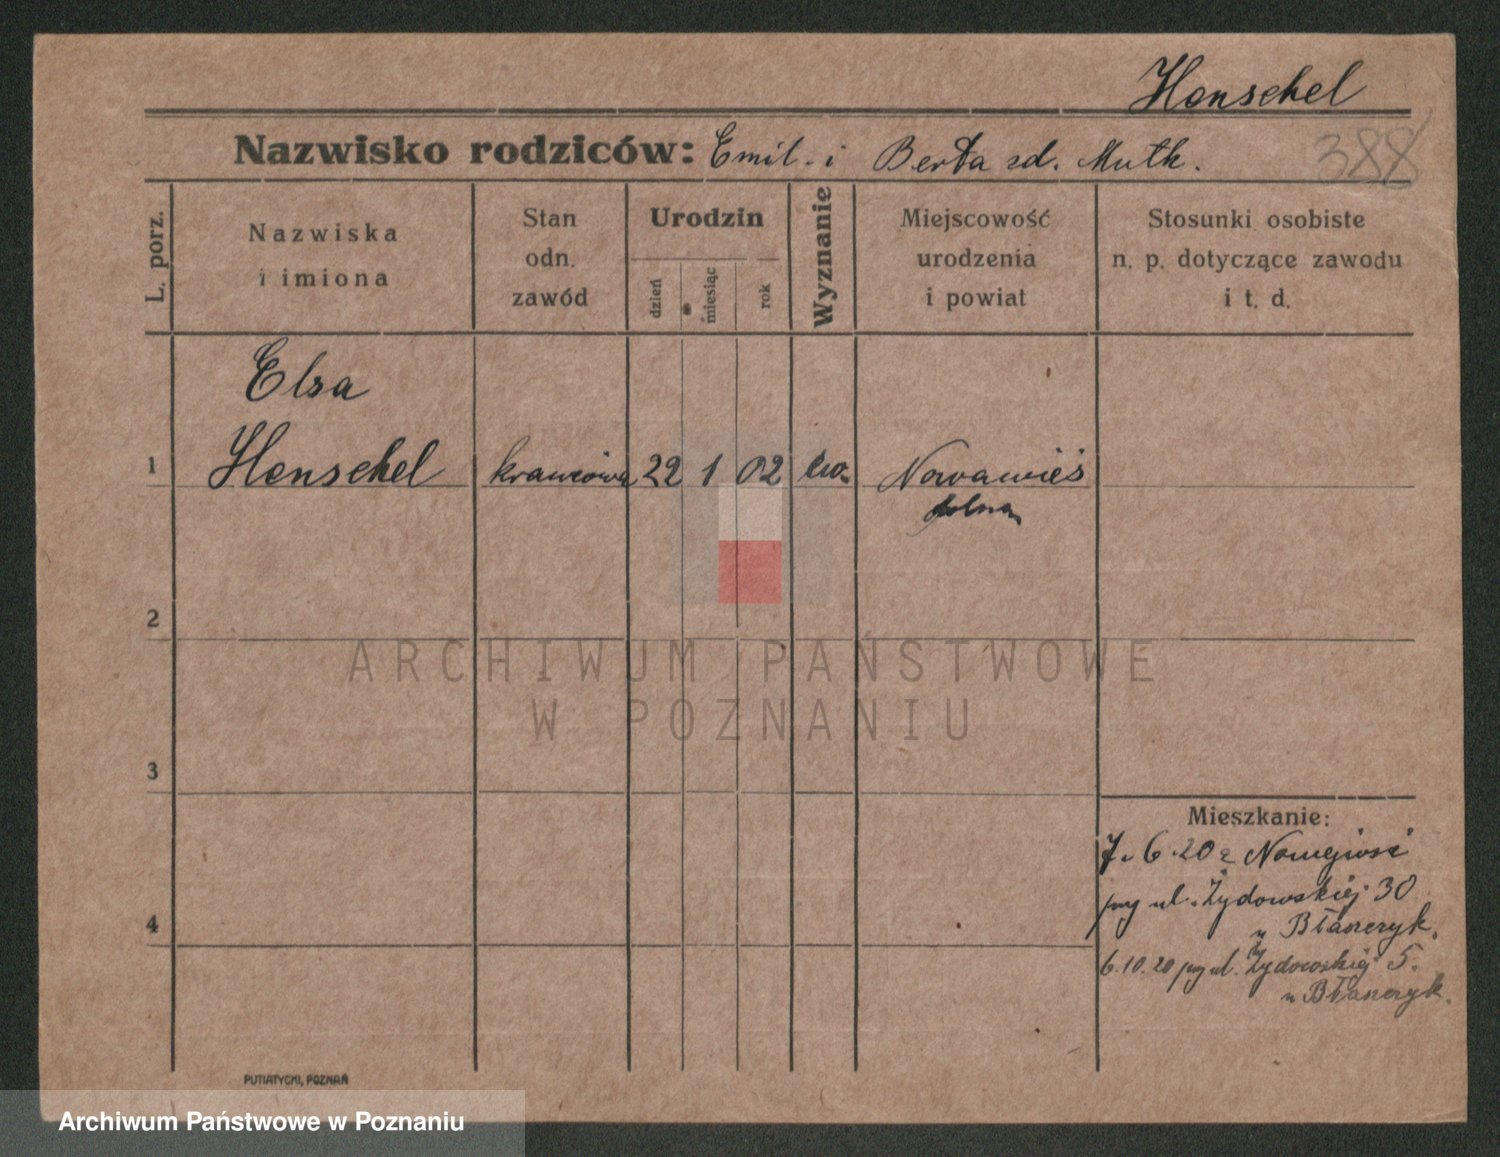 Henschel
Nazwisko rodziców: Emil. i Berta zd. Muth.
388
L. porz.
Nazwiska
i imiona
Stan
odn.
zawód
Urodzin
dzień
miesiąc
rok
Wyznanie
Miejscowość
urodzenia
i powiat
Stosunki osobiste
n. p. dotyczące zawodu
i t. d.
Elsa
1 Henschel krawcowa 22 1 02 ew. Nowawieś
2
3
4
Mieszkanie:
7. 6. 20 z Nowejwsi
przy ul. Żydowskiej 30
u Błaszczyk.
6.10.20 przy ul. Żydowskiej 5.
u Błaszczyk.
PUTIATYCKI, POZNAŃ
ARCHIWUM PAŃSTWOWE
W POZNANIU
Archiwum Państwowe w Poznaniu